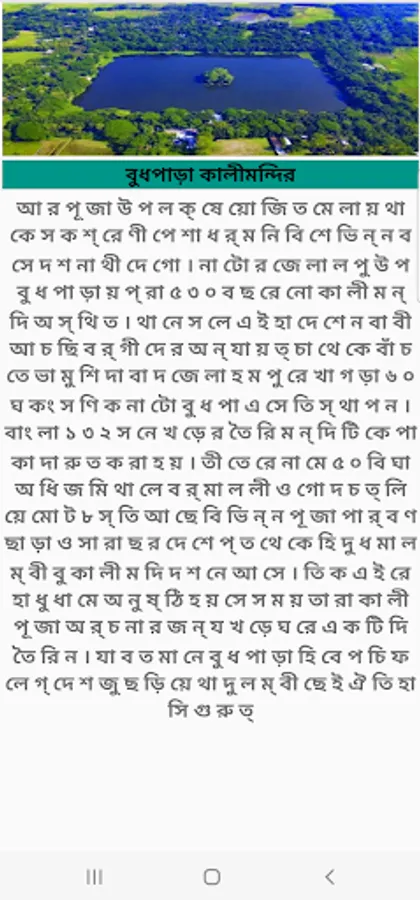 বুধপাড়া কালীমন্দির
আ র পূ জা উ প ল ক্ ষে য়ো জি ত মে লা য় থা
কে স ক শ্ রে ণী পে শা ধ র্ ম নি বি শে ভি ন্ ন ব
সে দ শ না থী দে গো । না টো র জে লা ল পু উ প
বু ধ পা ড়া য় প্ রা ৫ ৩ ০ ব ছ রে নো কা লী ম ন্
দি অ স্ থি ত । থা নে স লে এ ই হা দে শে ন বা বী
আ চ ছি ব র্ গী দে র অ ন্ যা য় ত্ চা থে কে বাঁ চ
তে ভা মু শি দা বা দ জে লা হ ম পু রে খা গ ড়া ৬ ০
ঘ কং স ণি ক না টো বু ধ পা এ সে তি স্ থা প ন ।
বাং লা ১ ৩ ২ স নে খ ড়ে র তৈ রি ম ন্ দি টি কে পা
কা দা রু ত ক রা হ য় । তী তে রে না মে ৫ ০ বি ঘা
অ ধি জ মি থা লে ব র্ মা ল লী ও গো দ চ ত্ লি
য়ে মো ট ৮ স্ তি আ ছে বি ভি ন্ ন পূ জা পা র্ ব ণ
ছা ড়া ও সা রা ছ র দে শে প্ ত থে কে হি দু ধ মা ল
ম্ বী বু কা লী ম দি দ শ নে আ সে । তি ক এ ই রে
হা ধু ধা মে অ নু ষ্ ঠি হ য় সে স ম য় তা রা কা লী
পূ জা অ র্ চ না র জ ন্ য খ ড়ে ঘ রে এ ক টি দি
তৈ রি ন । যা ব ত মা নে বু ধ পা ড়া হি বে প চি ফ
লে গ্ দে শ জু ছ ড়ি য়ে থা দু ল ম্ বী ছে ই ঐ তি হা
সি গু রু ত্